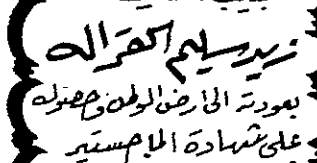 زيد سليم الحقر الله
بعودته الى ارض الوطن وحصوله
على شهادة الماجستير